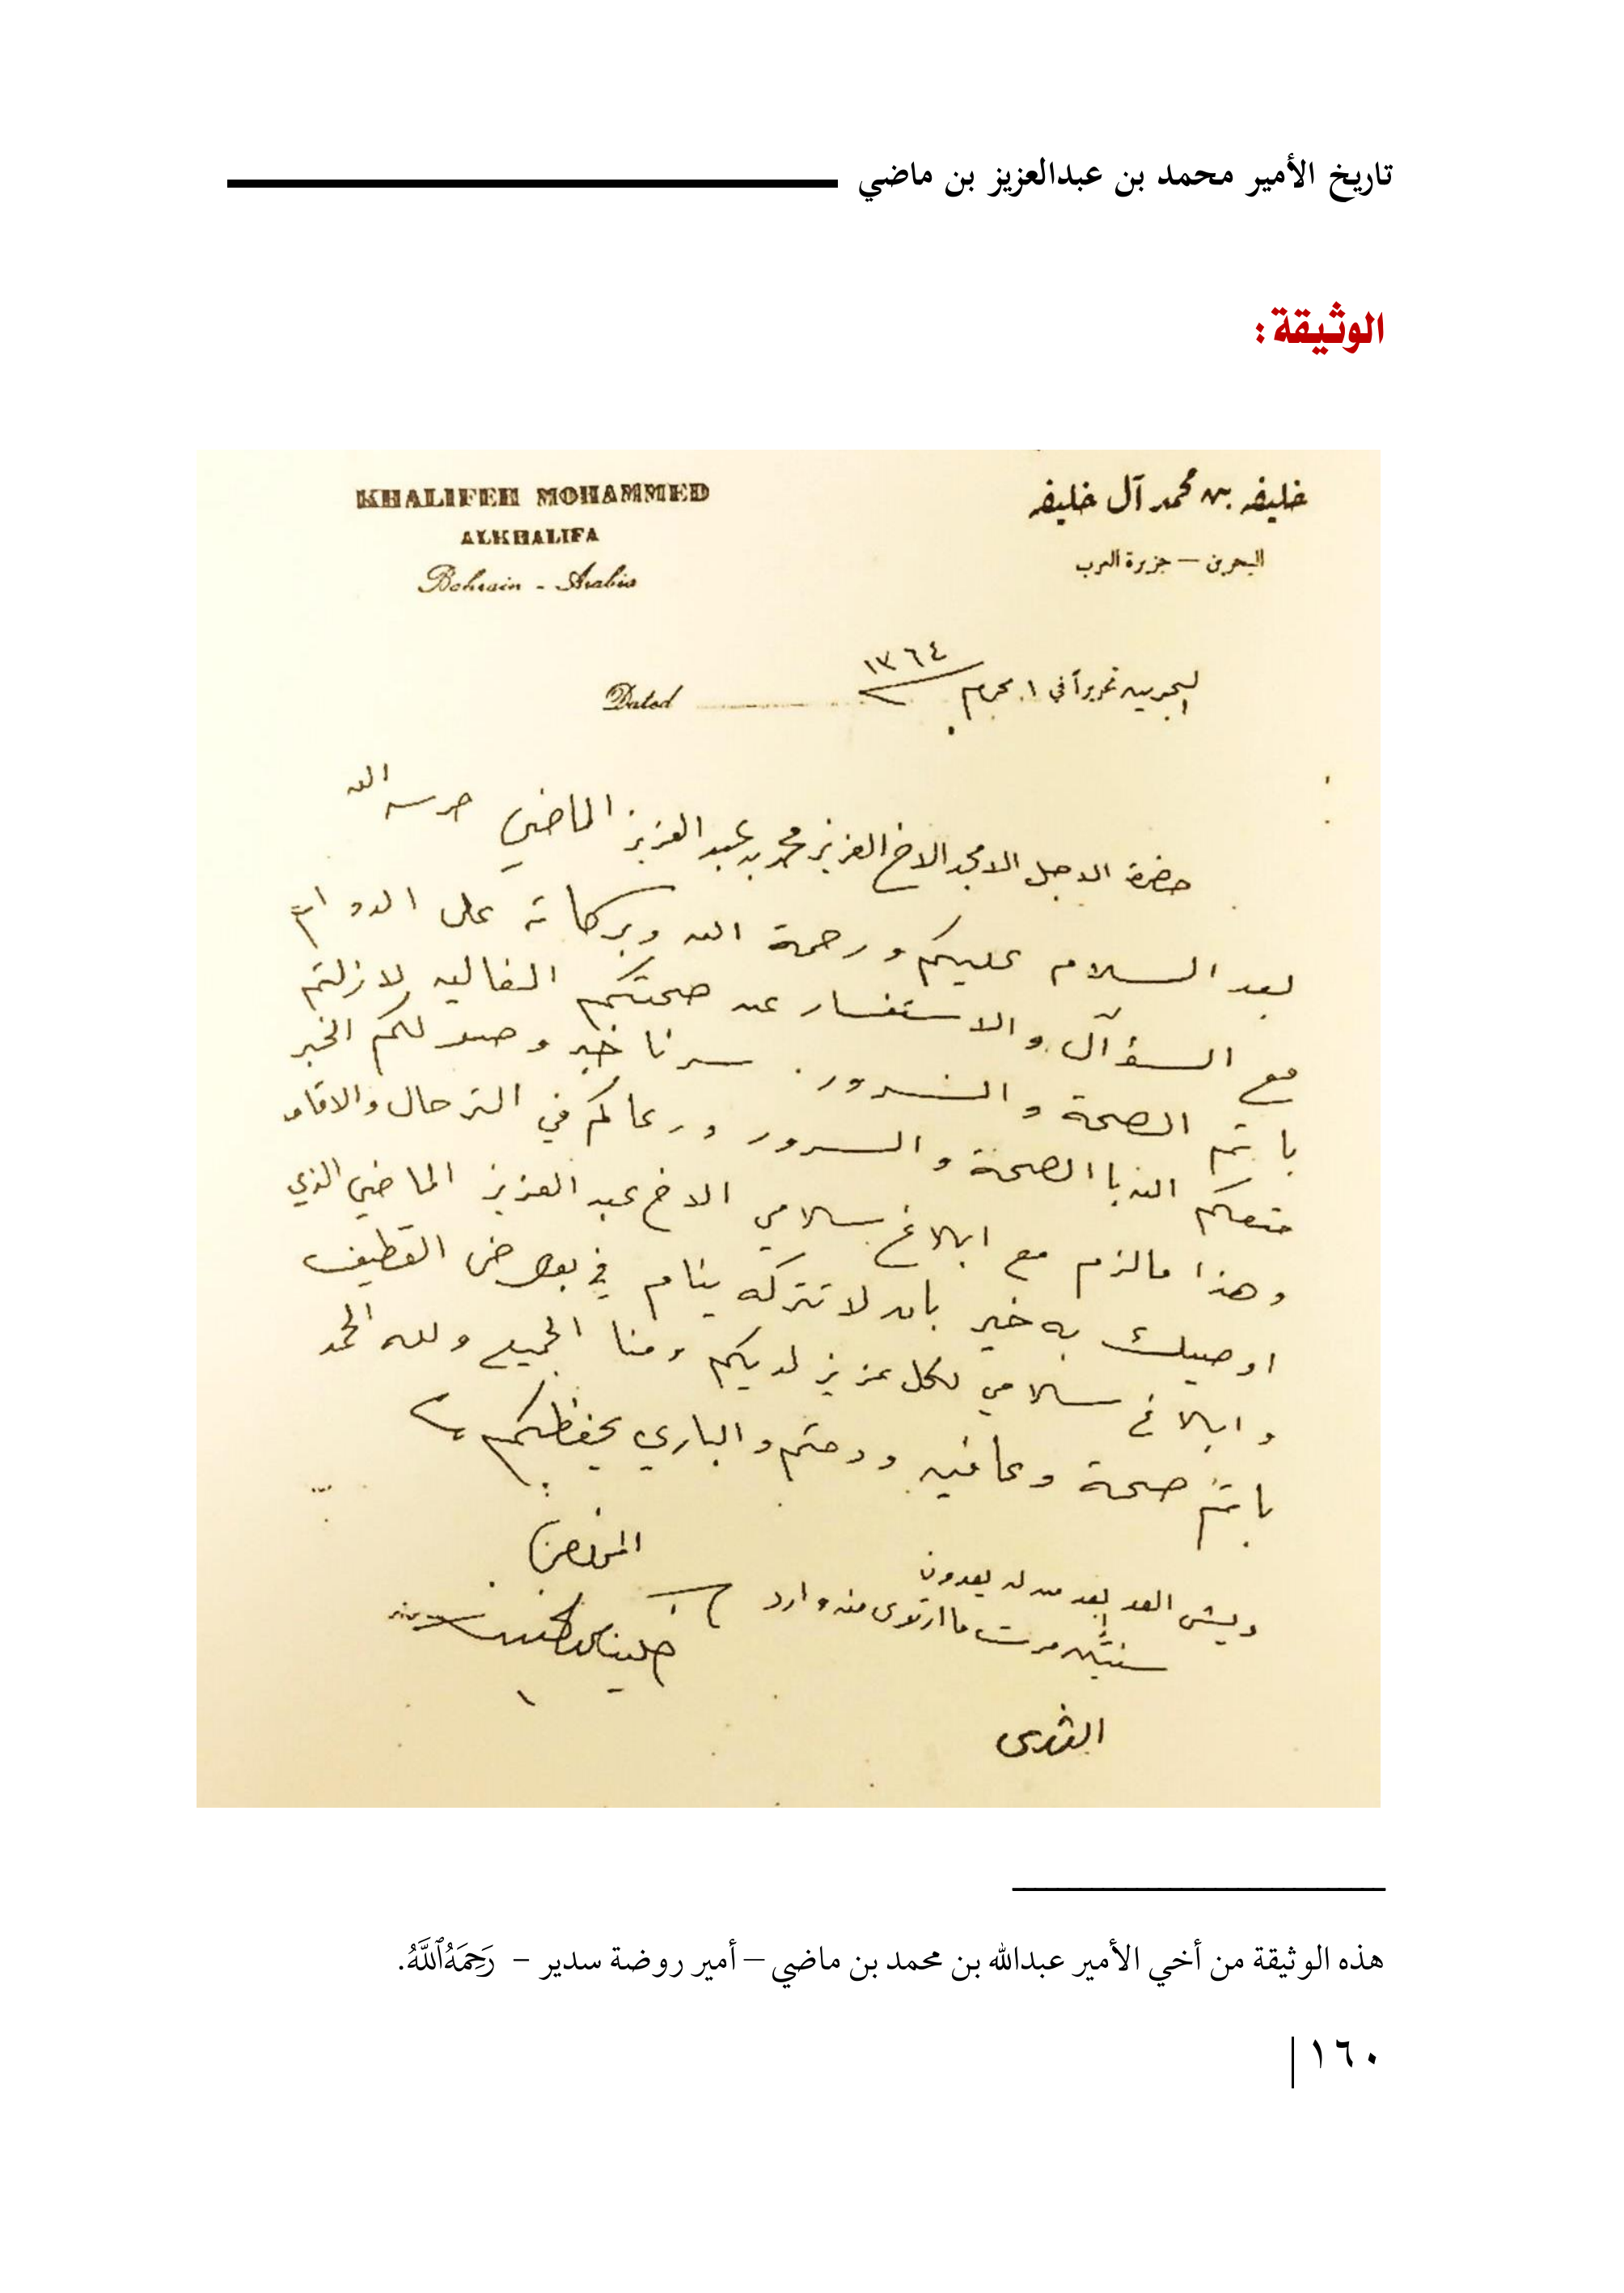 تاريخ الأمير محمد بن عبدالعزيز بن ماضي
الوثيقة:
خليفه بن محمد آل خليفه
البحرين — جزيرة العرب
KHALIFEH MOHAMMED
ALKHALIFA
Bahrain - Arabia
البحرين تحريراً في ١٠ محرم ١٣٦٤
Dated
حضرة الاجل الامجد الاخ العزيز محمد بن عبد العزيز الماضي حرسه الله
بعد السلام عليكم ورحمة الله وبركاته على الدوام
مع السؤآل والاستفسار عن صحتكم الغاليه لازلتم
باتم الصحة والسرور. سرنا خبر وصولكم الخبر
متعكم الله باالصحة والسرور ورعاكم في الترحال والاقامه
وهذا مالزم مع ابلاغ سلامي الاخ عبد العزيز الماضي الذي
اوصيك به خير بان لا تتركه ينام في بعوض القطيف
وابلاغ سلامي لكل عزيز لديكم ومنا الجميع ولله الحمد
باتم صحة وعافيه ودمتم والباري يحفظكم
المخلص
ويش العد بعد من له يعدون
سنتين مرت ما ارتوى منه وارد
هذه الوثيقة من أخي الأمير عبدالله بن محمد بن ماضي – أمير روضة سدير – رَحِمَهُ ٱللَّهُ.
١٦٠